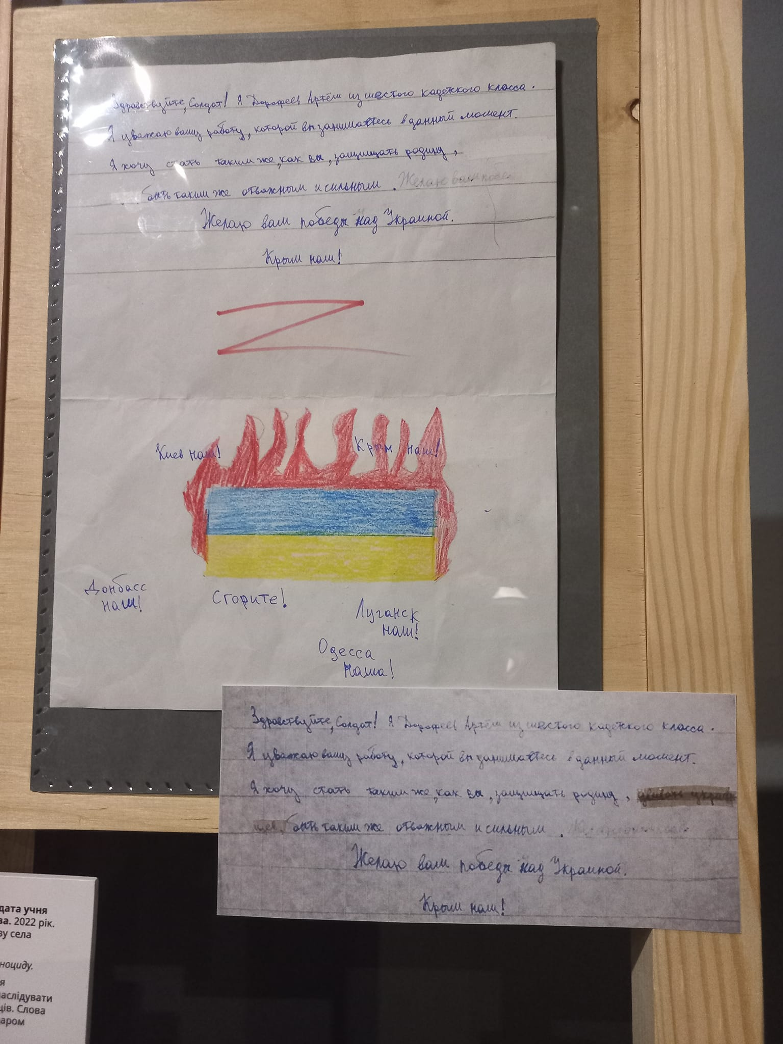 Здравствуйте, Солдат! Я Дорофеев Артём из шестого кадетского класса.
Я уважаю вашу работу, которой вы занимаетесь в данный момент.
Я хочу стать таким же, как вы, защищать родину,
быть таким же отважным и сильным. Желаю вам
Желаю вам победы над Украиной.
Крым наш!
Z
Киев наш!
Крым наш!
Донбасс
наш!
Сгорите!
Луганск
наш!
Одесса
наша!
Здравствуйте, Солдат! Я Дорофеев Артём из шестого кадетского класса.
Я уважаю вашу работу, которой вы занимаетесь в данный момент.
Я хочу стать таким же, как вы, защищать родину,
быть таким же отважным и сильным.
Желаю вам победы над Украиной.
Крым наш!
дата учня
ва. 2022 рік.
ву села
ноциду.
я
аслідувати
ців. Слова
аром